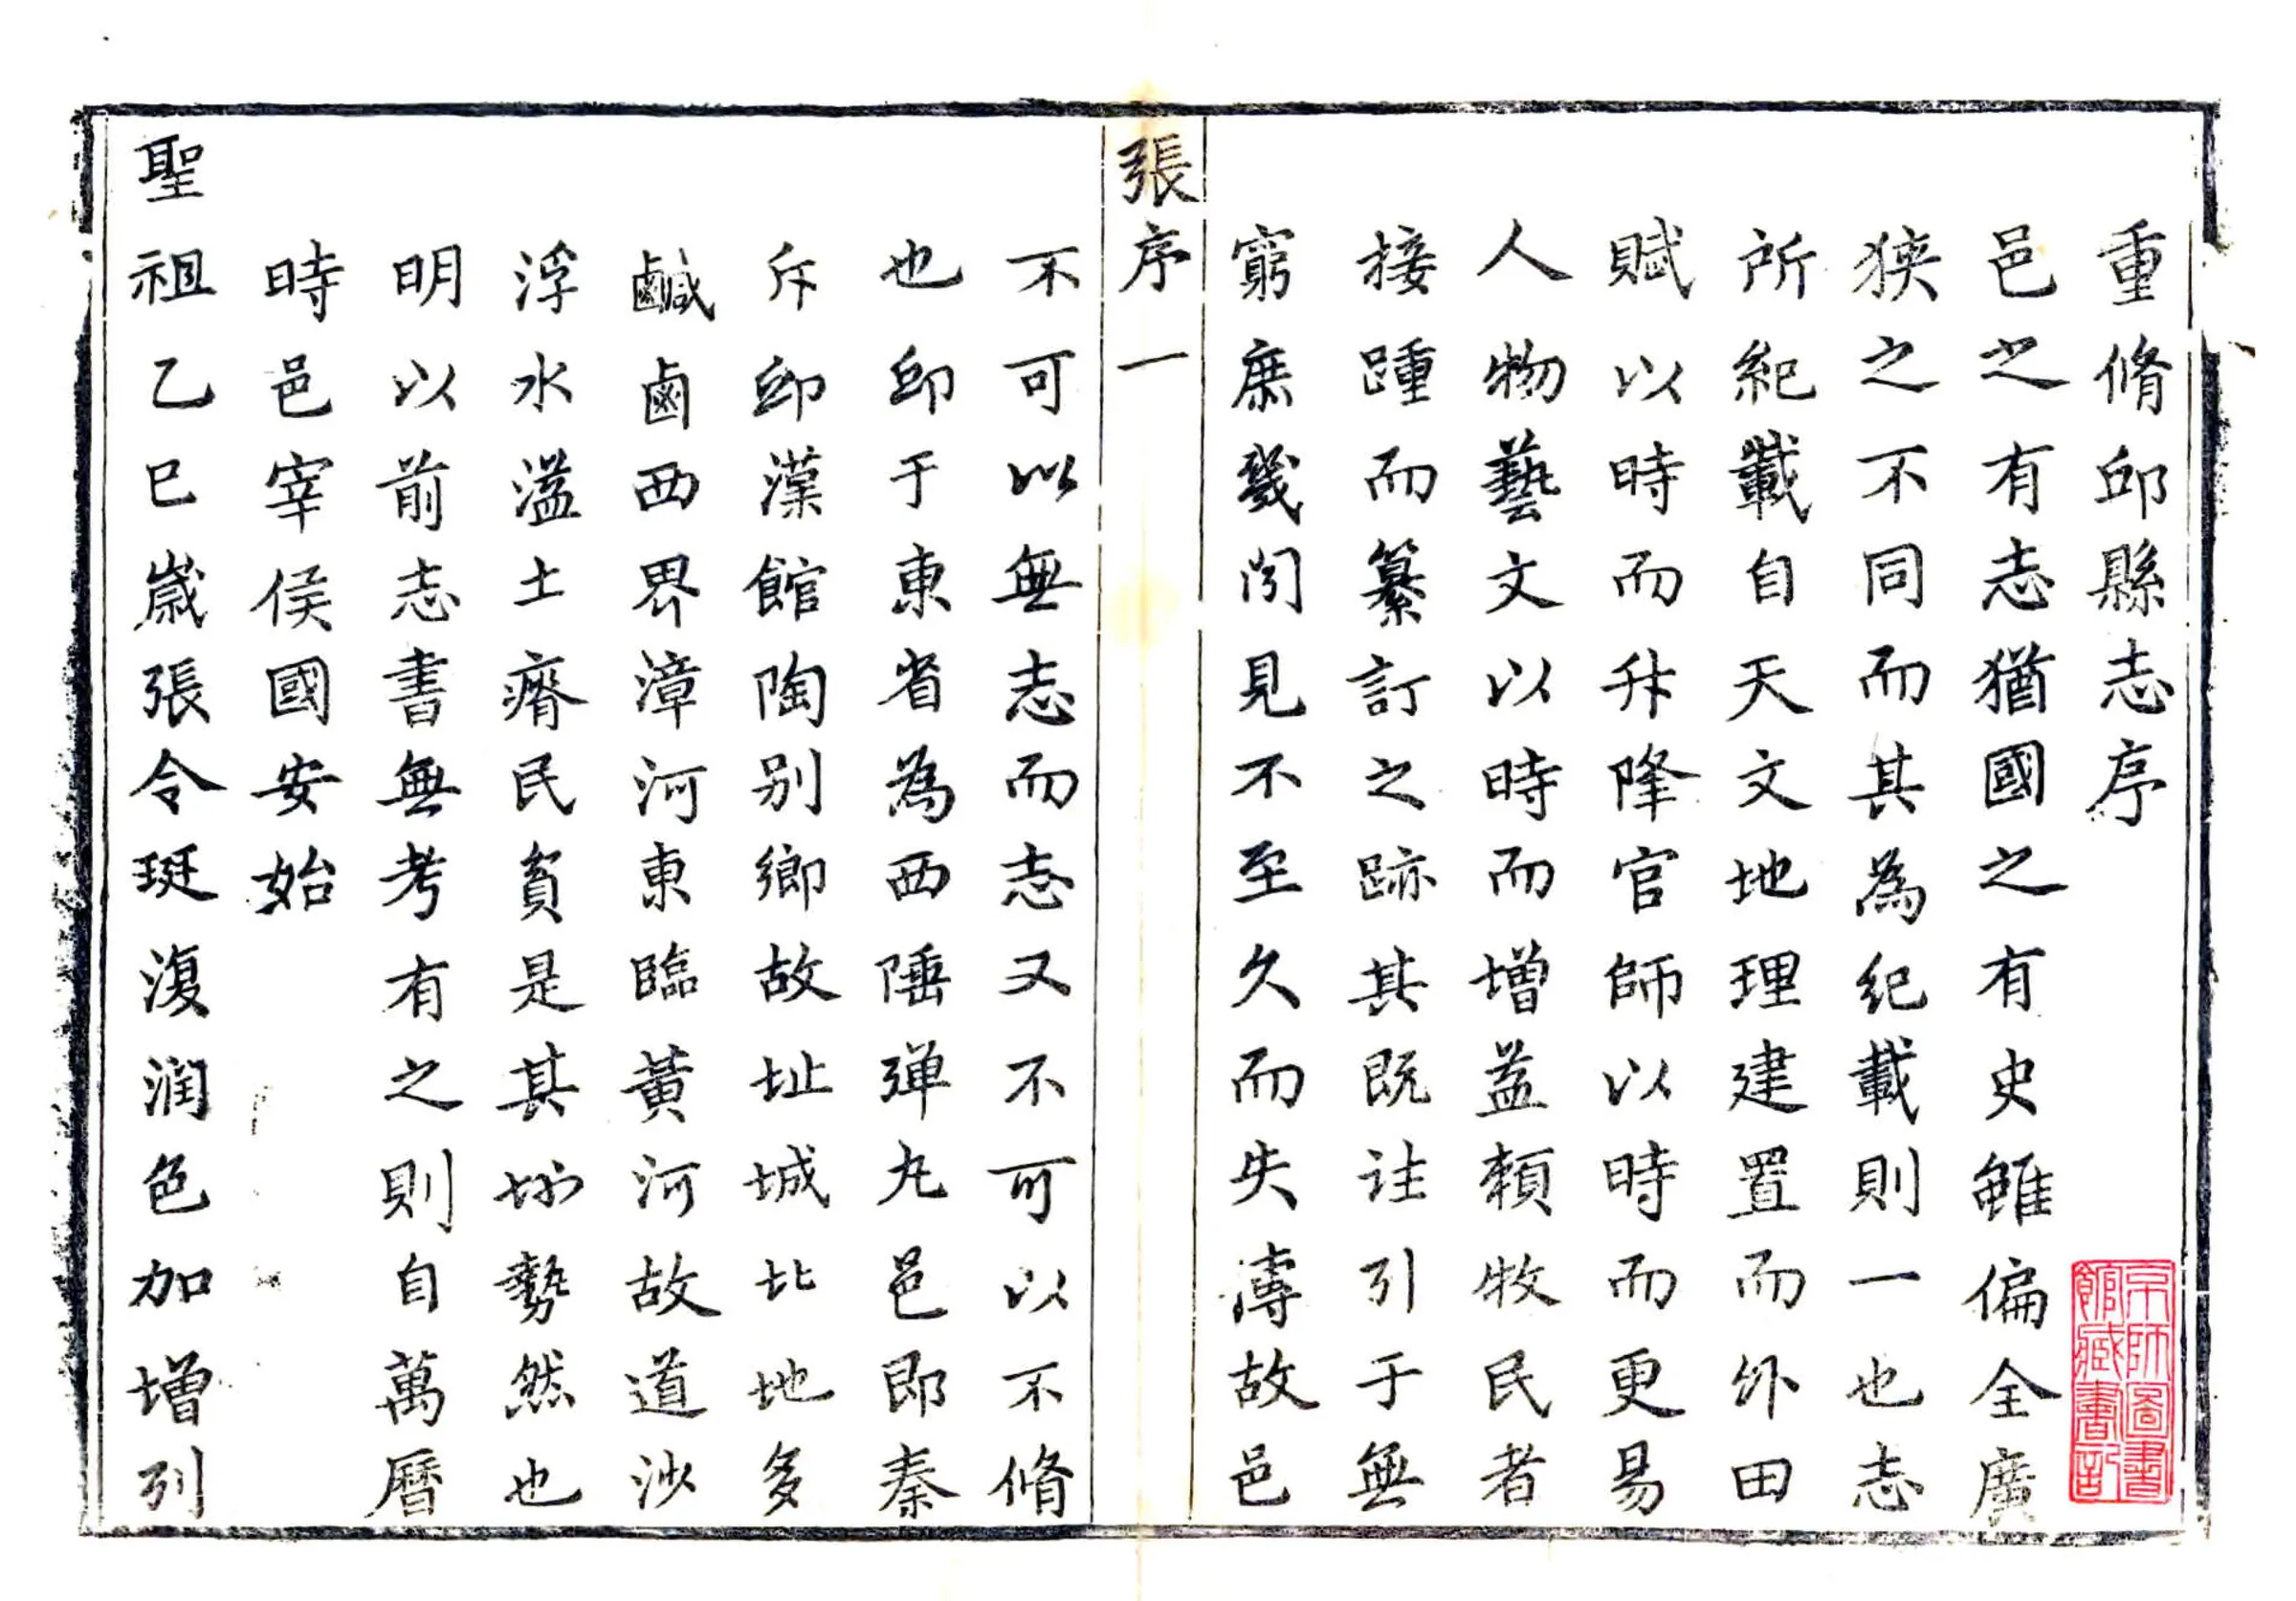 重脩邱縣志序
邑之有志猶國之有史雖偏全廣
狹之不同而其為紀載則一也志
所紀載自天文地理建置而外田
賦以時而升降官師以時而更易
人物藝文以時而增益賴牧民者
接踵而纂訂之跡其既往引于無
窮庶幾聞見不至久而失傳故邑
張序
一
不可以無志而志又不可以不脩
也邱于東省為西陲弹丸邑即秦
斥邱漢館陶別鄉故址城北地多
鹹鹵西界漳河東臨黃河故道沙
浮水溢土瘠民貧是其坳勢然也
明以前志書無考有之則自萬曆
時邑宰侯國安始
聖祖乙巳歲張令珽復潤色加增列
京師圖書
館藏書記